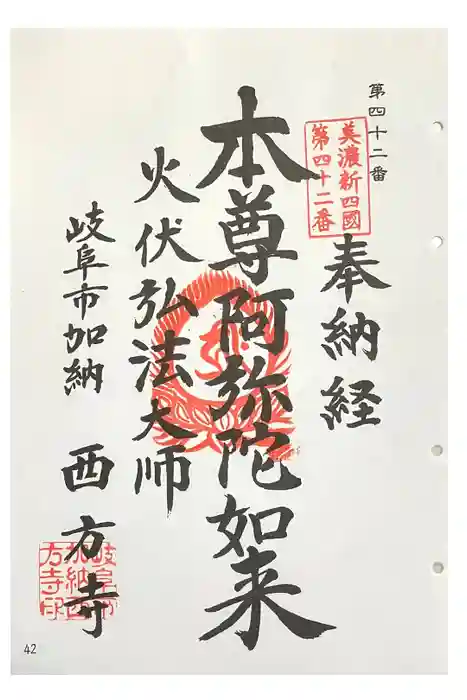 第四十二番
美濃新四國
第四十二番
奉納経
本尊阿弥陀如来
火伏弘法大師
岐阜市加納
西方寺
岐阜市
加納西
方寺印
42